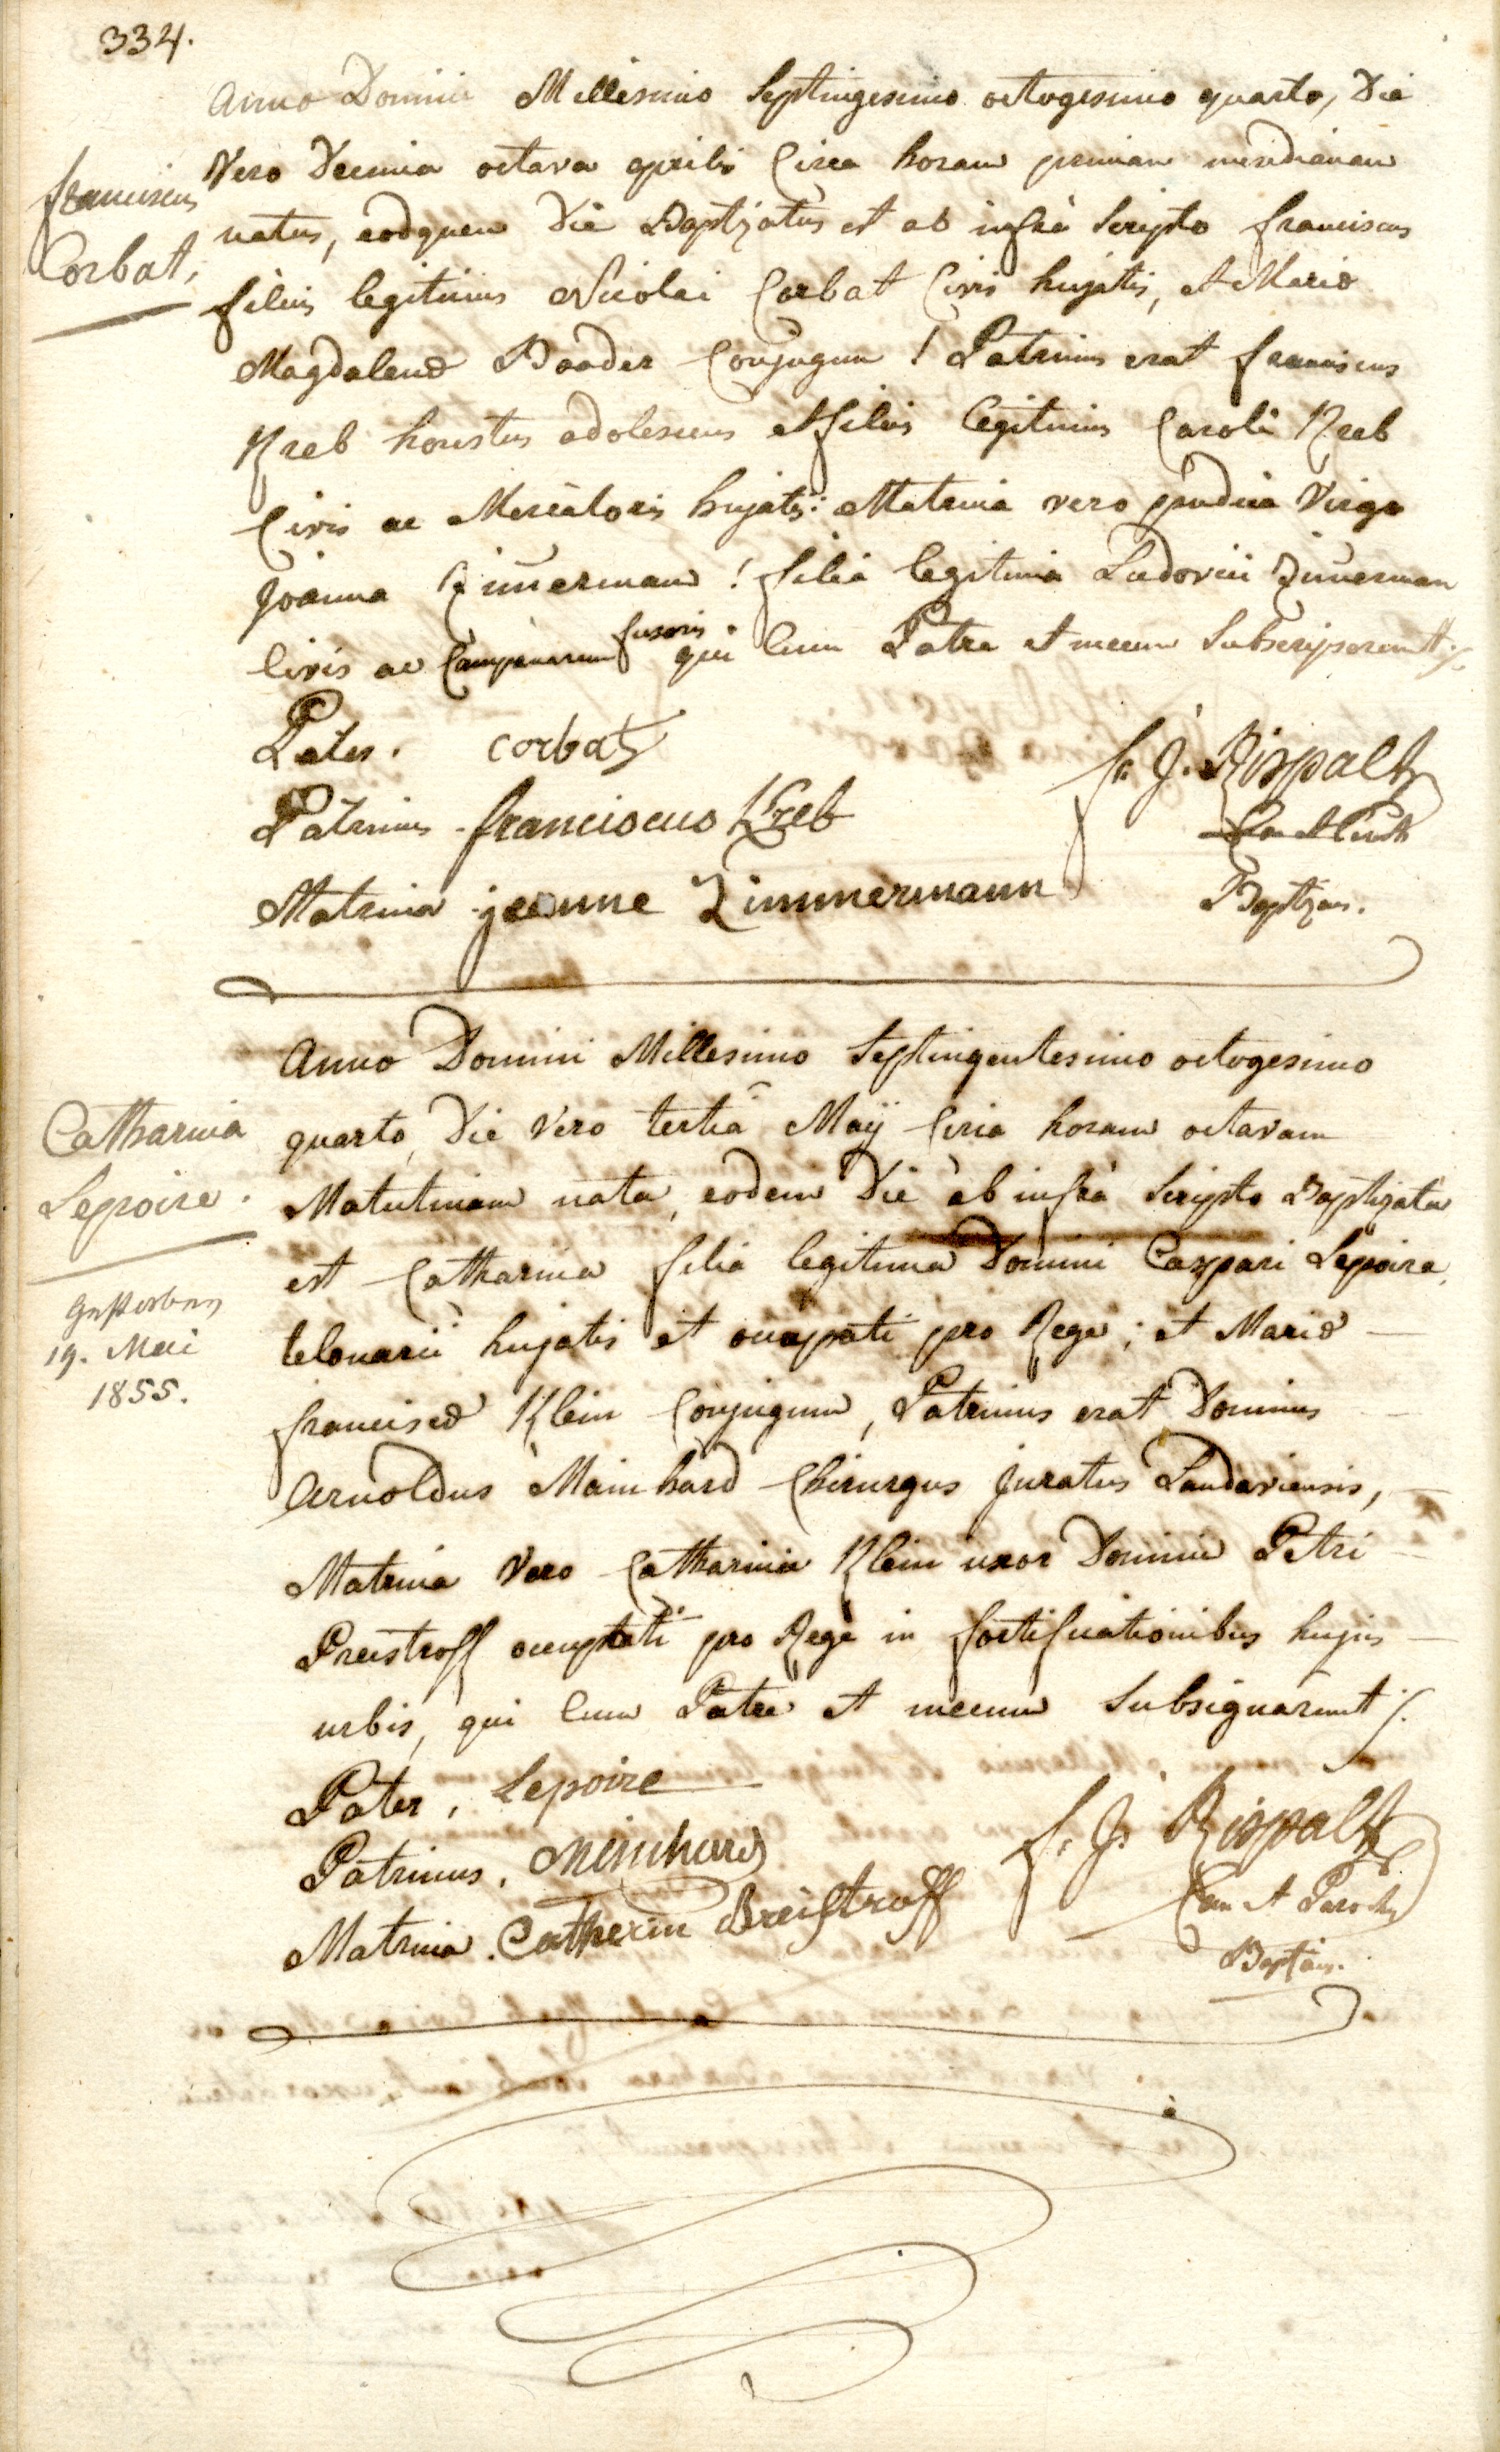 334.
Anno Domini Millesimo Septingesimo octogesimo quarto, Die
Franciscus
Corbat,
Vero Decima octava aprilis Circa horam primam meridianam
natus, eodquem Die Baptizatus est ab infrà Scripto franciscus
filius legitimus Nicolai Corbat Civis hujatis, et Mariæ
Magdalenæ Baader Conjugum ! Patrinus erat franciscus
Kreb honestus adolescens et filius legitimus Caroli Kreb
Civis ac Mercatoris hujatis: Matrina vero pudica Virgo
Joanna Zim̄ermann ! filia legitima Ludovici Zim̄erman
Civis ac Campanarum fusoris. qui Cum Patre et mecum Subscripserunt ./.
Pater. corbat
Patrinus franciscus Kreb
Matrina jeanne Zimmermann
fr. J. Rispalt
Baptizans.
Anno Domini Millesimo Septingentesimo octogesimo
Catharina
Lepoire.
gestorben
19. Mai
1855.
quarto, Die Vero tertiâ Maÿ Circa horam octavam
Matutinam nata, eodem Die ab infrà Scripto Baptizata
est Catharina filia legitima Domini Caspari Lepoire,
telonarii hujatis et occupati pro Rege; et Mariæ —
franciscæ Klein Conjugum, Patrinus erat Dominus —
Arnoldus Mainhard Chirurgus Juratus Landaviensis, —
Matrina Vero Catharina Klein uxor Domini Petri —
Preistroff occupati pro Rege in fortificationibus hujus —
urbis, qui Cum Patre et mecum Subsignarunt ./.
Pater, Lepoire
Patrinus, Meinhard
Matrina. Catherin Breistroff
f. J. Rispalt
Can et Paroch
Baptizans.